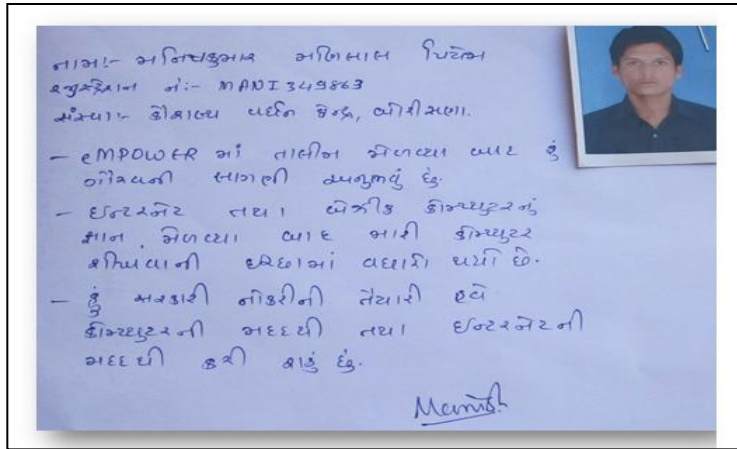 નામ:- મનિષકુમાર મણિલાલ પિટેલ
રજીસ્ટ્રેશન નં:- MANI349863
સંસ્થા:- કૌશલ્ય વર્ધન કેન્દ્ર, બોરીસણા.
- eMPOWER માં તાલીમ મેળવ્યા બાદ હું
ગૌરવની લાગણી અનુભવું છું.
- ઈન્ટરનેટ તથા બેઝીક કોમ્પ્યુટરનું
જ્ઞાન મેળવ્યા બાદ મારી કોમ્પ્યુટર
શીખવાની ઈચ્છામાં વધારો થયો છે.
- હું સરકારી નોકરીની તૈયારી હવે
કોમ્પ્યુટરની મદદથી તથા ઈન્ટરનેટની
મદદથી કરી શકું છું.
Manish